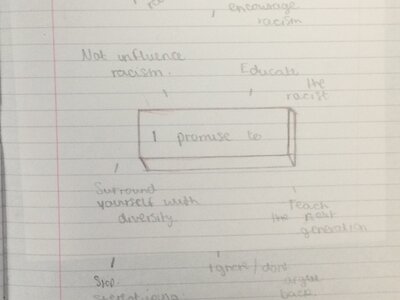 encourage
racism
Not influence
racism.
Educate
the
racist
I promise to
Surround
yourself with
diversity
Teach
the next
generation
Ignore / dont
argue
back
Stop
stereotyping